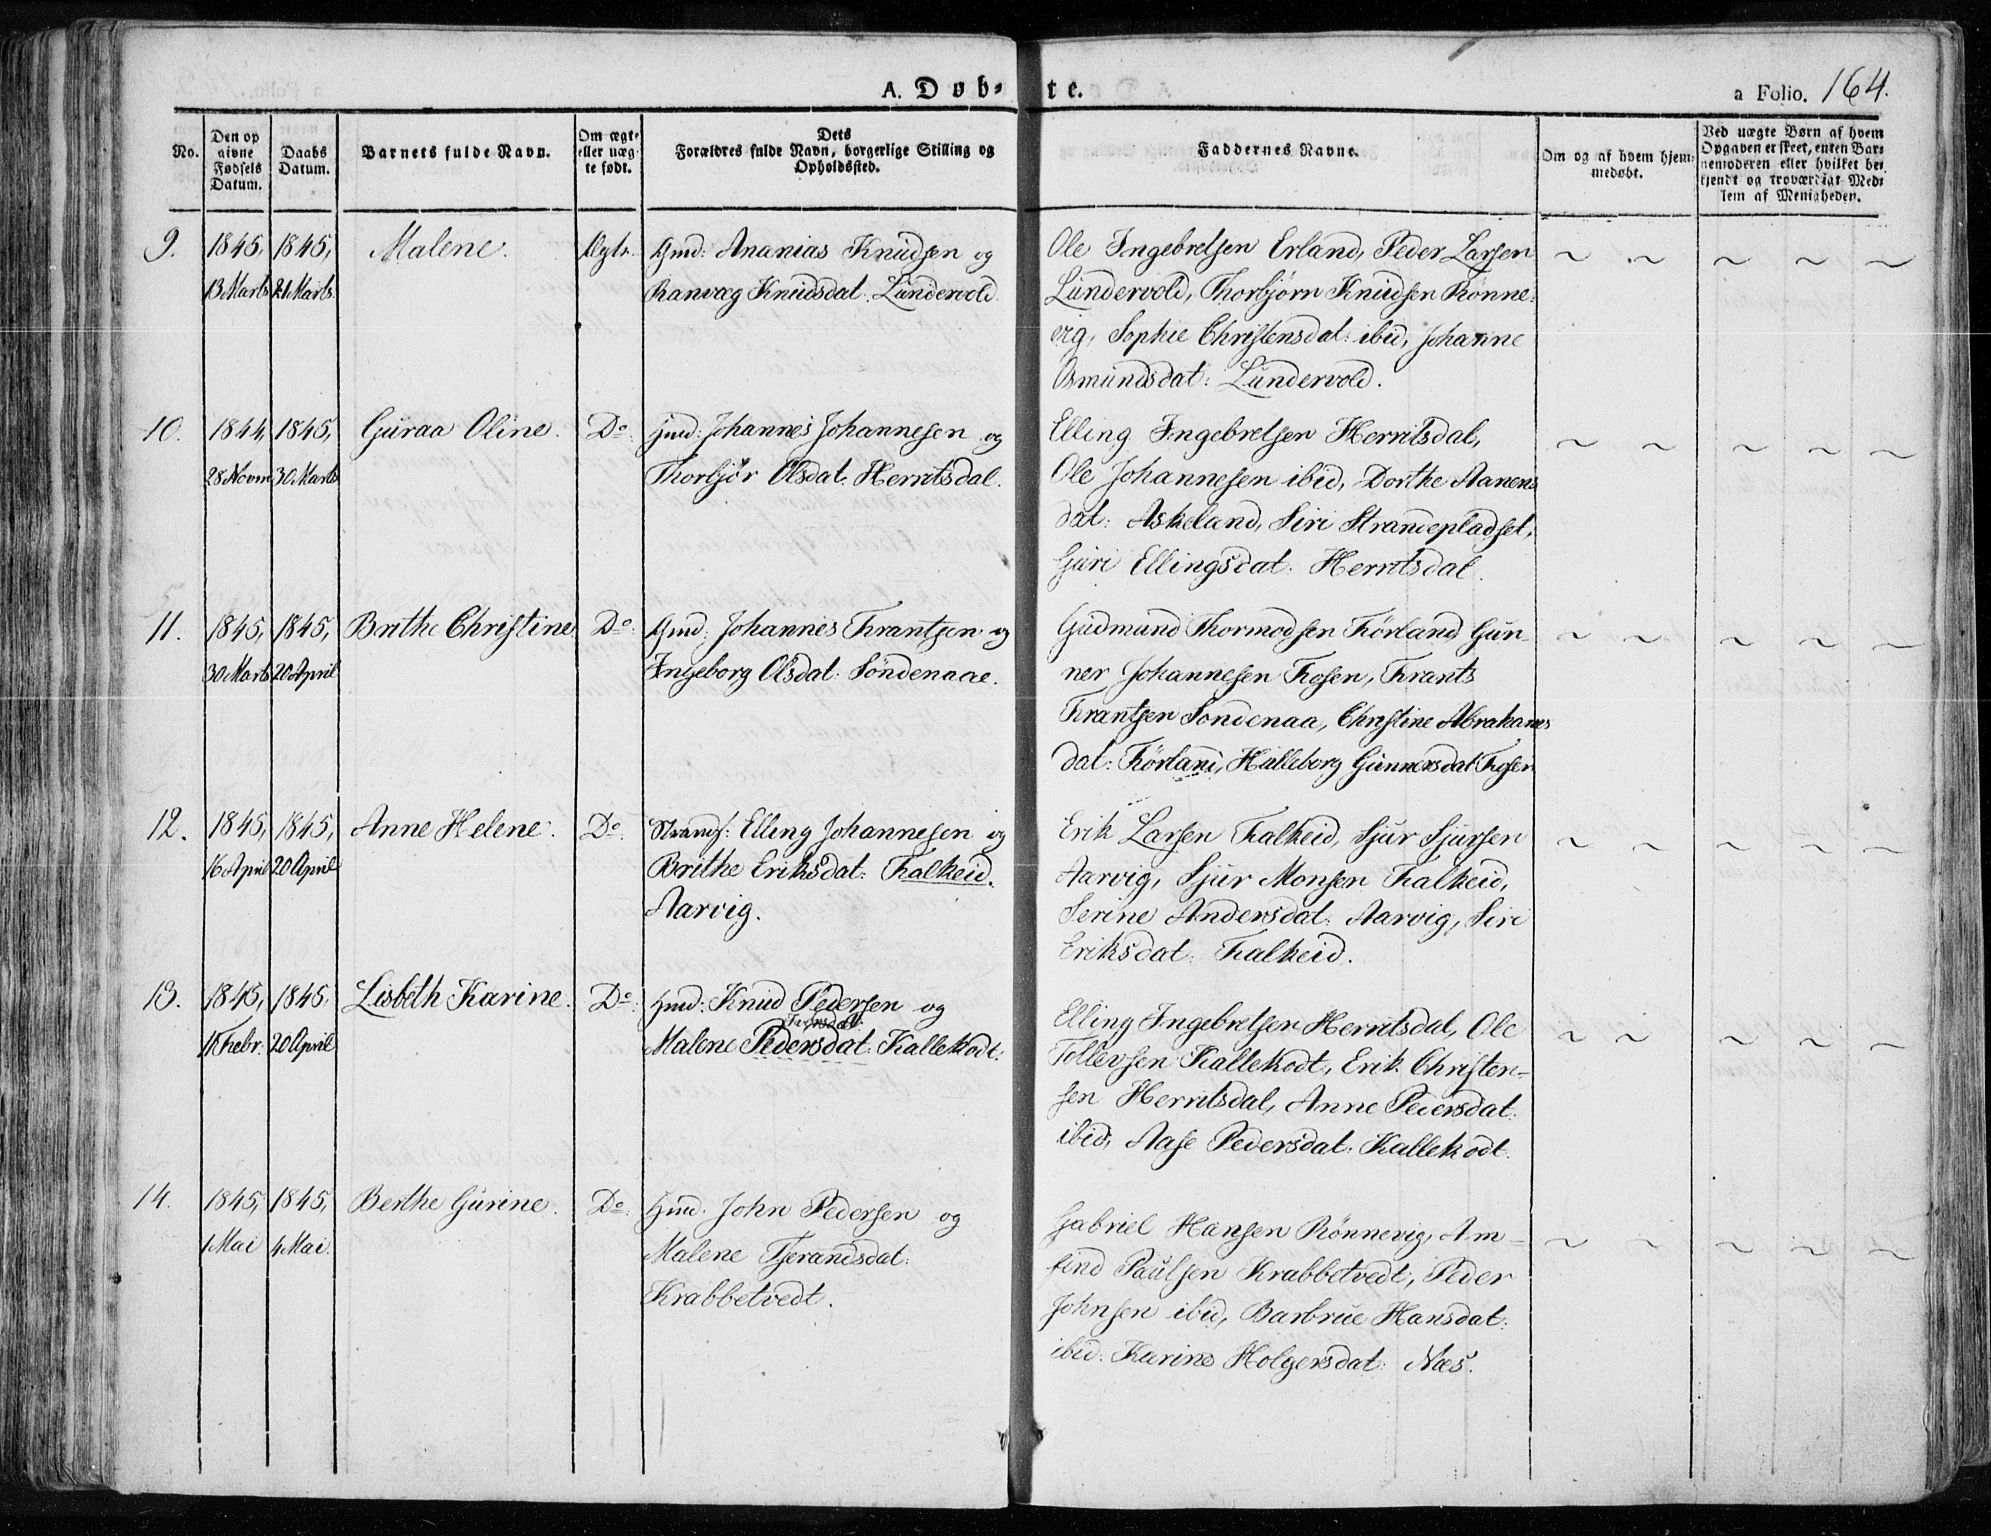 A. Døb- te.
a Folio. 164.
No.
Den op
givne
Fødsels
Datum.
Daabs
Datum.
Barnets fulde Navn.
Om ægte
eller uæg-
te født.
Dets
Forældres fulde Navn, borgerlige Stilling og
Opholdssted.
Faddernes Navne.
Om og af hvem hjem-
medøbt.
Ved uægte Børn af hvem
Opgaven er skeet, enten Bar-
nemoderen eller hvilket be-
kjendt og troværdigt Med-
lem af Menigheden.
9. 1845, 1845, Malene. Ægte. Gmd: Ananias Knudsen og
13 Marts 21 Marts. Ranvæg Knudsdat. Lundervold.
Ole Ingebretsen Erland, Peder Larsen
Lundervold, Thorbjørn Knudsen Rønne-
vig, Sophie Christensdat: ibid, Johanne
Osmundsdat: Lundervold.
10. 1844, 1845, Guraa Oline. Do. Hmd: Johannes Johannesen og
28 Novm 30 Marts Thorbjør Olsdat. Herritsdal.
Elling Ingebretsen Herritsdal,
Ole Johannesen ibid, Dorthe Aanens
dat: Askeland, Siri Strandepladset,
Guri Ellingsdat. Herritsdal.
11. 1845, 1845, Brithe Christine. Do. Gmd: Johannes Frantsen og
30 Marts 20 April Ingeborg Olsdat: Søndenaae.
Gudmund Thormodsen Førland Gun-
ner Johannesen Fosen, Frants
Frantsen Søndenaa, Christine Abrahams
dat: Førland, Halleborg Gunnersdat Fosen
12. 1845, 1845, Anne Helene. Do. Strands: Elling Johannesen og
16 April 20 April Brithe Eriksdat: Falkeid.
Aarvig.
Erik Larsen Falkeid, Sjur Sjursen
Aarvig, Sjur Monsen Falkeid,
Serine Andersdat: Aarvig, Siri
Eriksdat: Falkeid.
13. 1845, 1845. Lisbeth Karine. Do. Hmd: Knud Pedersen og
Febr: 20 April Malene Pedersdat: Kallekodt.
Elling Ingebretsen Herritsdal, Ole
Tollevsen Kallekodt, Erik Christen-
sen Herritsdal, Anne Pedersdat.
ibid, Aase Pedersdat: Kallekodt.
14. 1845, 1845, Berthe Gurine. Do. Hmd. John Pedersen og
1 Mai 4 Mai. Malene Tjerandsdat:
Krabbetvedt.
Gabriel Hansen Rønnevig, Am-
find Paulsen Krabbetvedt, Peder
Johnsen ibid, Barbrue Hansdat:
ibid: Karine Holgersdat: Næs.